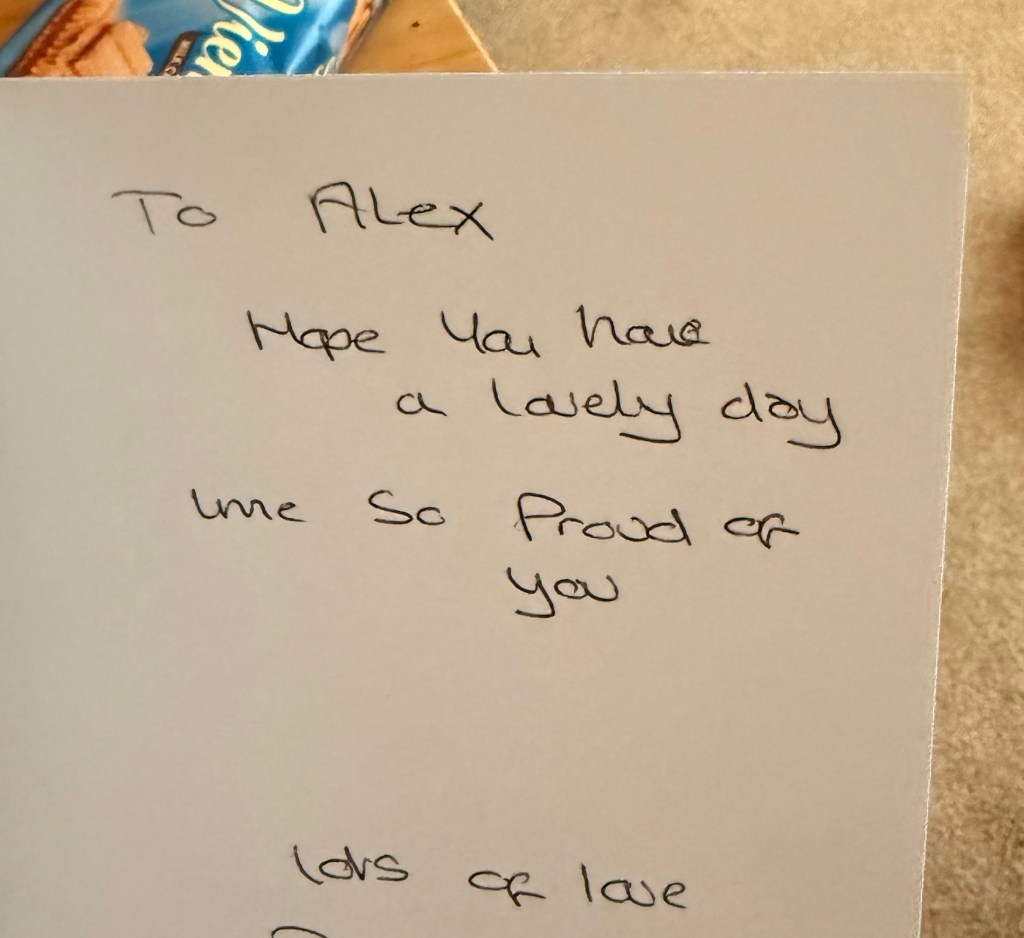 Vien
To Alex
Hope you have
a lovely day
were so Proud of
you
lots of love